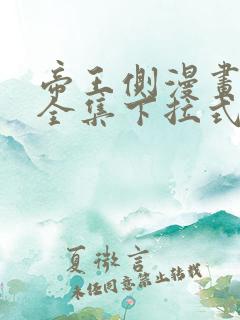 帝王側漫畫
全集下拉式
夏微言
未经同意禁止转载